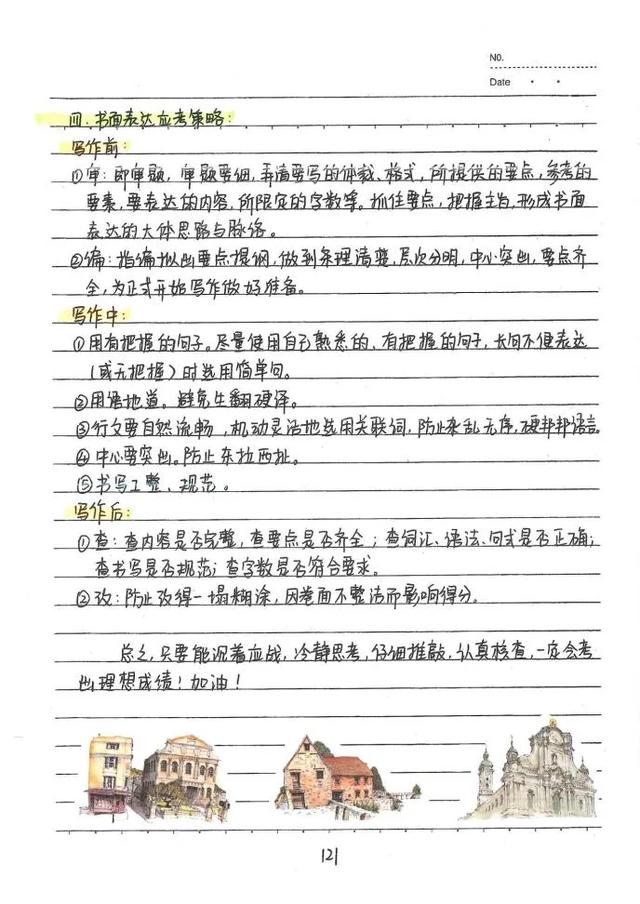 NO.
Date
四.书面表达应考策略:
写作前:
①审:即审题,审题要细,弄清要写的体裁、格式,所提供的要点,参考的
要素,要表达的内容,所限定的字数等。抓住要点,把握主旨,形成书面
表达的大体思路与脉络。
②编:指编拟出要点提纲,做到条理清楚,层次分明,中心突出,要点齐
全,为正式开始写作做好准备。
写作中:
①用有把握的句子。尽量使用自己熟悉的、有把握的句子,长句不便表达
(或无把握)时选用简单句。
②用语地道。避免生翻硬译。
③行文要自然流畅,机动灵活地选用关联词,防止杂乱无序,硬邦邦语言
④中心要突出。防止东拉西扯。
⑤书写工整、规范。
写作后:
①查:查内容是否完整,查要点是否齐全;查词汇、语法、句式是否正确;
查书写是否规范;查字数是否符合要求。
②改:防止改得一塌糊涂,因卷面不整洁而影响得分。
总之,只要能沉着应战,冷静思考,仔细推敲,认真检查,一定会考
出理想成绩!加油!
121